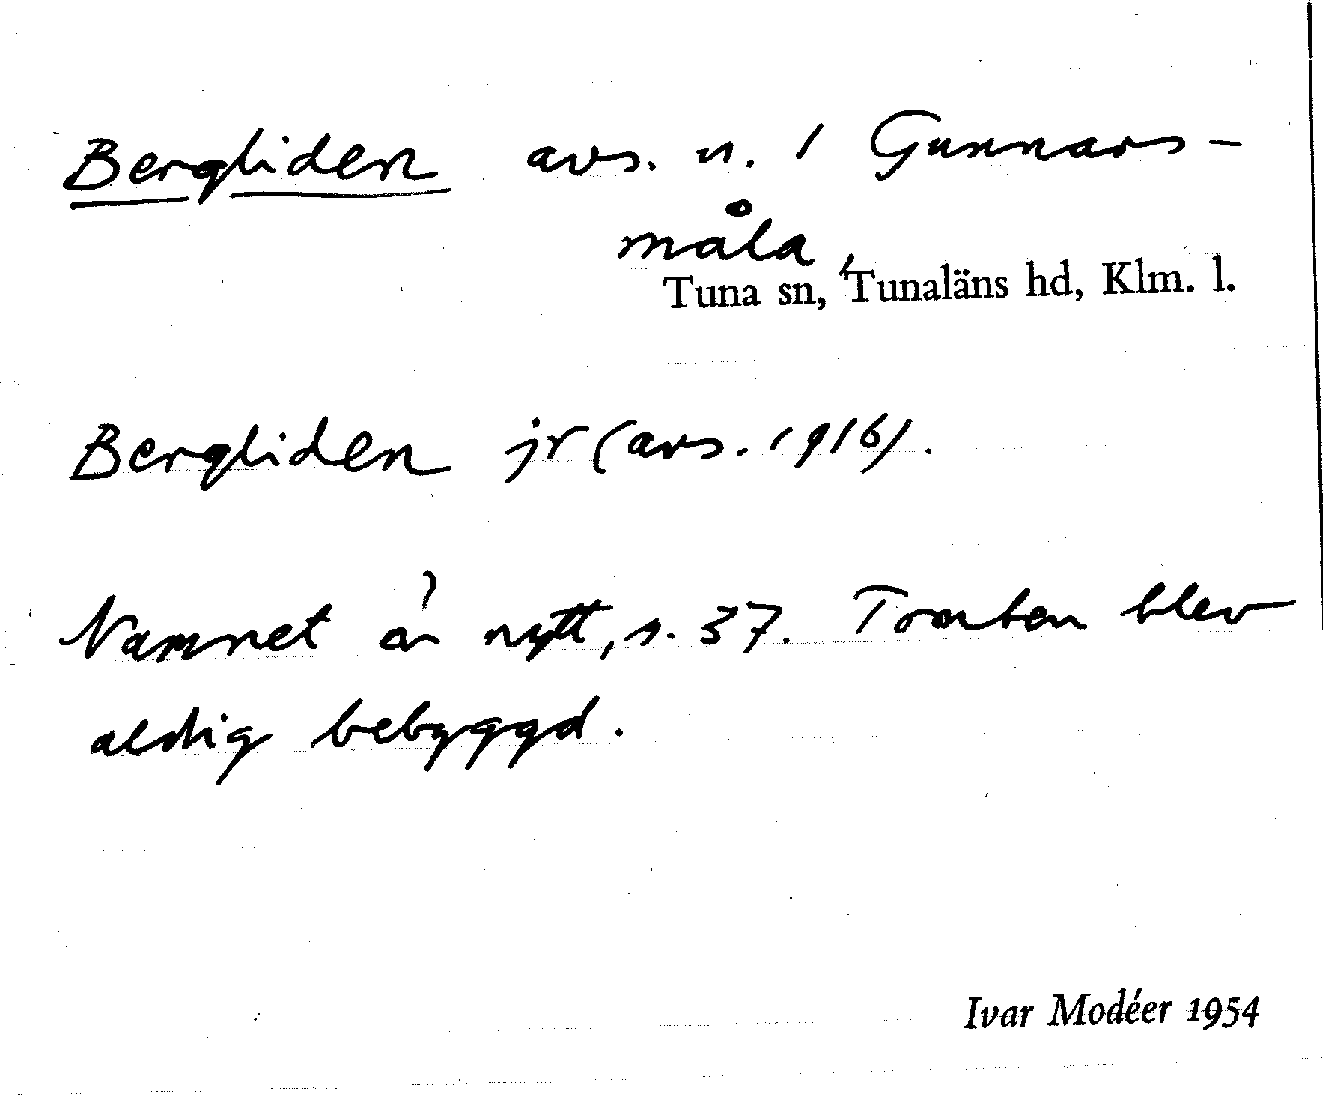 Bergliden avs. u. / Gunnars-
måla,
Tuna sn, Tunaläns hd, Klm. l.
Bergliden jr (avs. 1916).
Namnet är nytt, s. 37. Tomten blev
aldrig bebyggd.
Ivar Modéer 1954